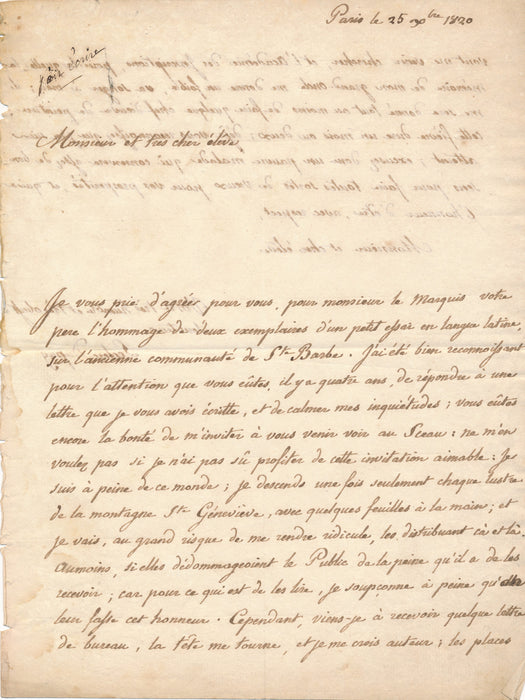 Paris le 25 Xbre 1820
Monsieur et très cher élève
Je vous prie d'agréer pour vous, pour monsieur le Marquis votre
pere l'hommage de deux exemplaires d'un petit essai en langue latine,
sur l'ancienne communauté de Ste Barbe. J'ai été bien reconnoissant
pour l'attention que vous eûtes, il y a quatre ans, de répondre à une
lettre que je vous avois écritte, et de calmer mes inquiétudes; vous eûtes
encore la bonté de m'inviter à vous venir voir au Sceau: ne m'en
voulez pas si je n'ai pas sû profiter de cette invitation aimable: Je
suis à peine de ce monde; je descends une fois seulement chaque lustre
de la montagne Ste Géneviève, avec quelques feuilles à la main; et
je vais, au grand risque de me rendre ridicule, les distribuant çà et là.
Aumoins, si elles dédommageoient le Public de la peine qu'il a de les
recevoir; car pour ce qui est de les lire, je soupçonne à peine qu'on
leur fasse cet honneur. Cependant, viens-je à recevoir quelque lettre
de bureau, la tête me tourne, et je me crois auteur; les places